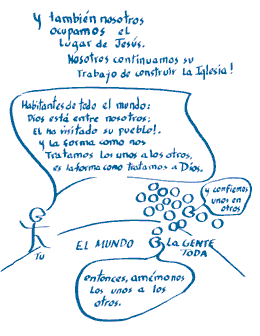 Y también nosotros
ocupamos el
lugar de Jesús.
Nosotros continuamos su
Trabajo de construir la Iglesia!
Habitantes de todo el mundo:
Dios está entre nosotros;
El ha visitado su pueblo!.
y la forma como nos
Tratamos los unos a los otros,
es la forma como tratamos a Dios.
y confiemos
unos en
otros
TU
EL MUNDO
LA GENTE
TODA
entonces, amémonos
Los unos a los
otros.